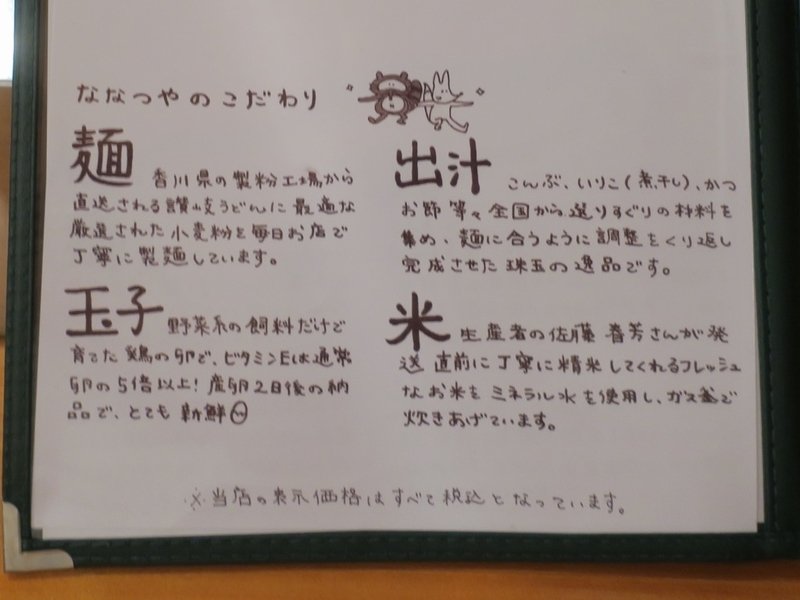 ななつやのこだわり
麺 香川県の製粉工場から
直送される讃岐うどんに最適な
厳選された小麦粉を毎日お店で
丁寧に製麺しています。
出汁 こんぶ、いりこ(煮干し)、かつ
お節 等々全国から選りすぐりの材料を
集め、麺に合うように調整をくり返し
完成させた珠玉の逸品です。
玉子 野菜系の飼料だけで
育てた鶏の卵で、ビタミンEは通常
卵の5倍以上!産卵2日後の納
品で、とても新鮮
米 生産者の佐藤 春芳さんが発
送 直前に丁寧に精米してくれるフレッシュ
なお米をミネラル水を使用し、ガス釜で
炊きあげています。
※当店の表示価格はすべて税込となっています。